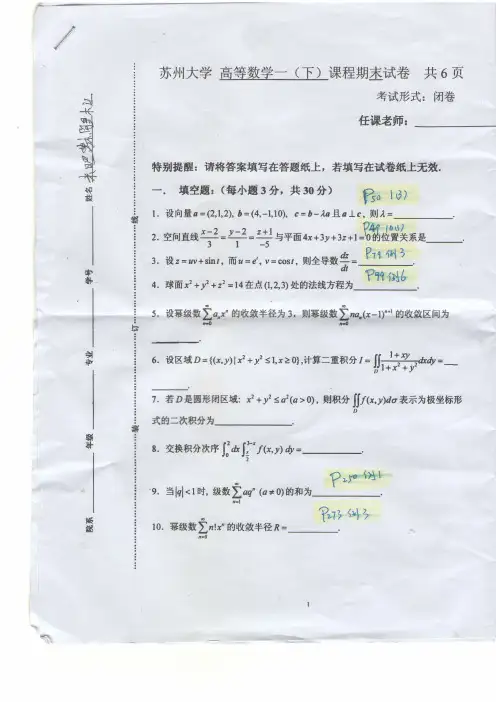 苏州大学 高等数学一（下）课程期末试卷 共6页
考试形式：闭卷
任课老师：
特别提醒：请将答案填写在答题纸上，若填写在试卷纸上无效.
一． 填空题：（每小题3分，共30分）
P50 1(3)
1．设向量a=(2,1,2), b=(4,-1,10), c=b-λa且a⊥c，则λ= .
2．空间直线(x-2)/3=(y-2)/1=(z+1)/-5与平面4x+3y+3z+1=0的位置关系是 .
3．设z=uv+sint，而u=e^t，v=cost，则全导数dz/dt= .
例3
4．球面x²+y²+z²=14在点(1,2,3)处的法线方程为 .
P99 例6
5．设幂级数∑_{n=0}^{∞}a_n x^n的收敛半径为3，则幂级数∑_{n=0}^{∞}na_n(x-1)^{n+1}的收敛区间为
.
6．设区域D={(x,y)|x²+y²≤1,x≥0},计算二重积分I=∬_D (1+xy)/(1+x²+y²)dxdy=
.
7．若D是圆形闭区域：x²+y²≤a²(a>0)，则积分∬_D f(x,y)dσ表示为极坐标形
式的二次积分为 .
8．交换积分次序∫_0^2 dx∫_{x/2}^{3-x} f(x,y)dy= .
P250 例1
9．当|q|<1时，级数∑_{n=1}^{∞}aq^n (a≠0)的和为 .
P273 例3
10．幂级数∑_{n=0}^{∞}n!x^n的收敛半径R= .
1
院系 年级 专业 学号 姓名
装 订 线